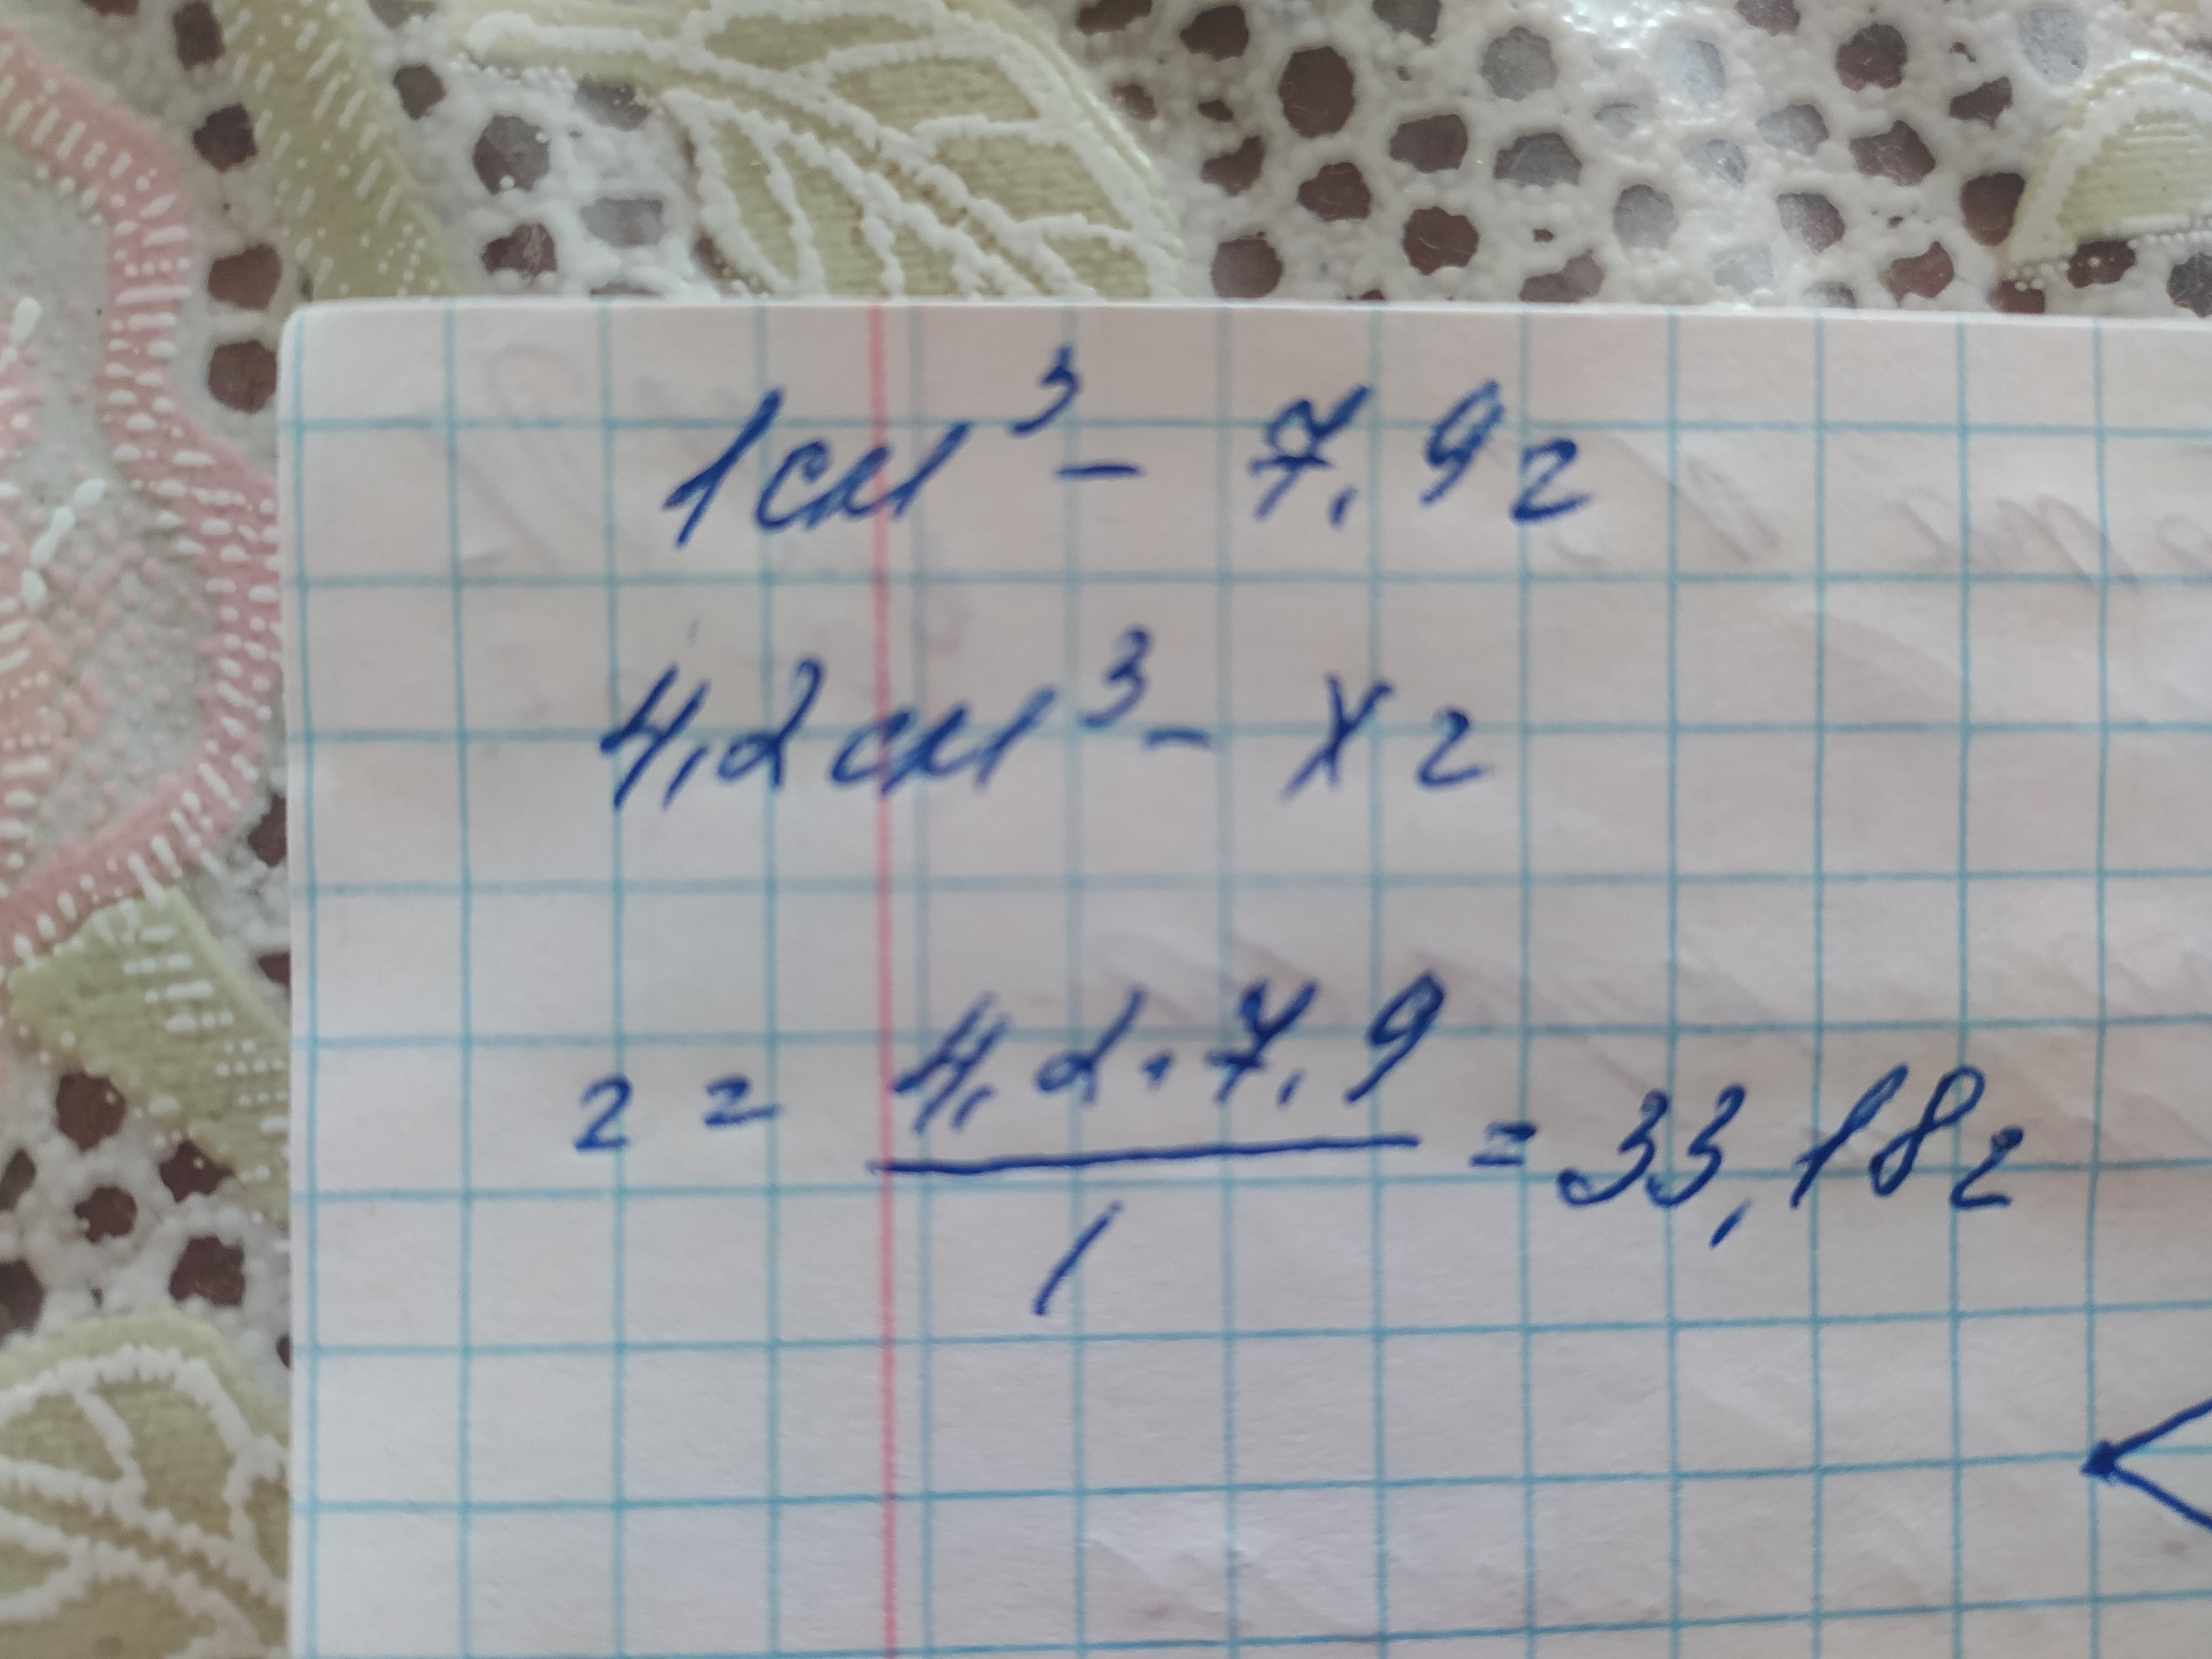 1см³ - 7,9г
4,2см³ - х г
г = 4,2·7,9 / 1 = 33,18г